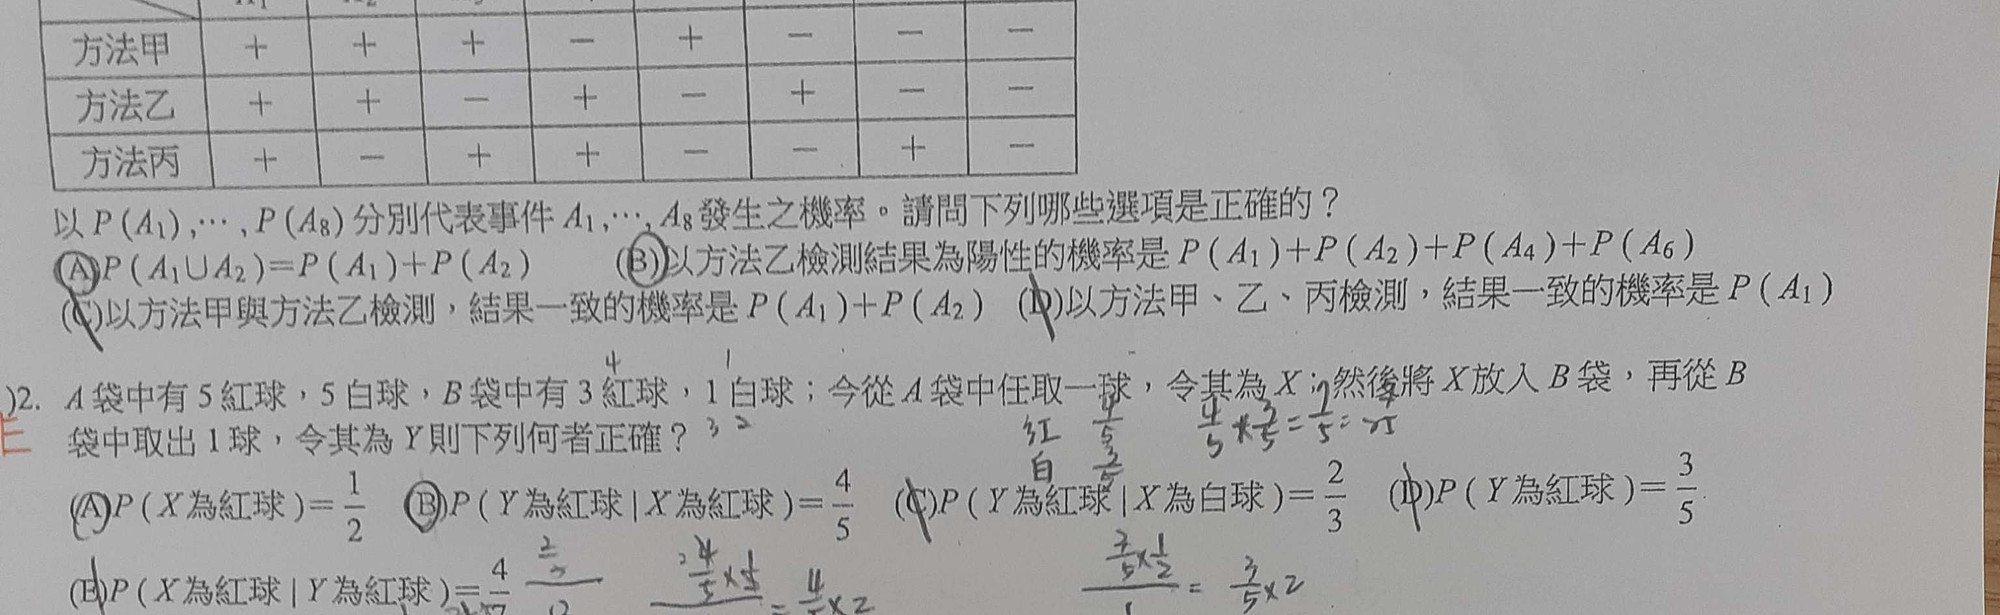 方法甲 + + + − + − − −
方法乙 + + − + − + − −
方法丙 + − + + − − + −
以 P(A₁),⋯,P(A₈) 分別代表事件 A₁,⋯,A₈ 發生之機率。請問下列哪些選項是正確的？
(A)P(A₁∪A₂)=P(A₁)+P(A₂) (B)以方法乙檢測結果為陽性的機率是 P(A₁)+P(A₂)+P(A₄)+P(A₆)
(C)以方法甲與方法乙檢測，結果一致的機率是 P(A₁)+P(A₂) (D)以方法甲、乙、丙檢測，結果一致的機率是 P(A₁)
4 1
)2. A 袋中有 5 紅球，5 白球，B 袋中有 3 紅球，1 白球；今從 A 袋中任取一球，令其為 X；然後將 X 放入 B 袋，再從 B
袋中取出 1 球，令其為 Y 則下列何者正確？ 3 2
紅 4/5
白 3/5
(A)P(X 為紅球)=1/2 (B)P(Y 為紅球|X 為紅球)=4/5 (C)P(Y 為紅球|X 為白球)=2/3 (D)P(Y 為紅球)=3/5
(E)P(X 為紅球|Y 為紅球)=4/7
= 3/5×2